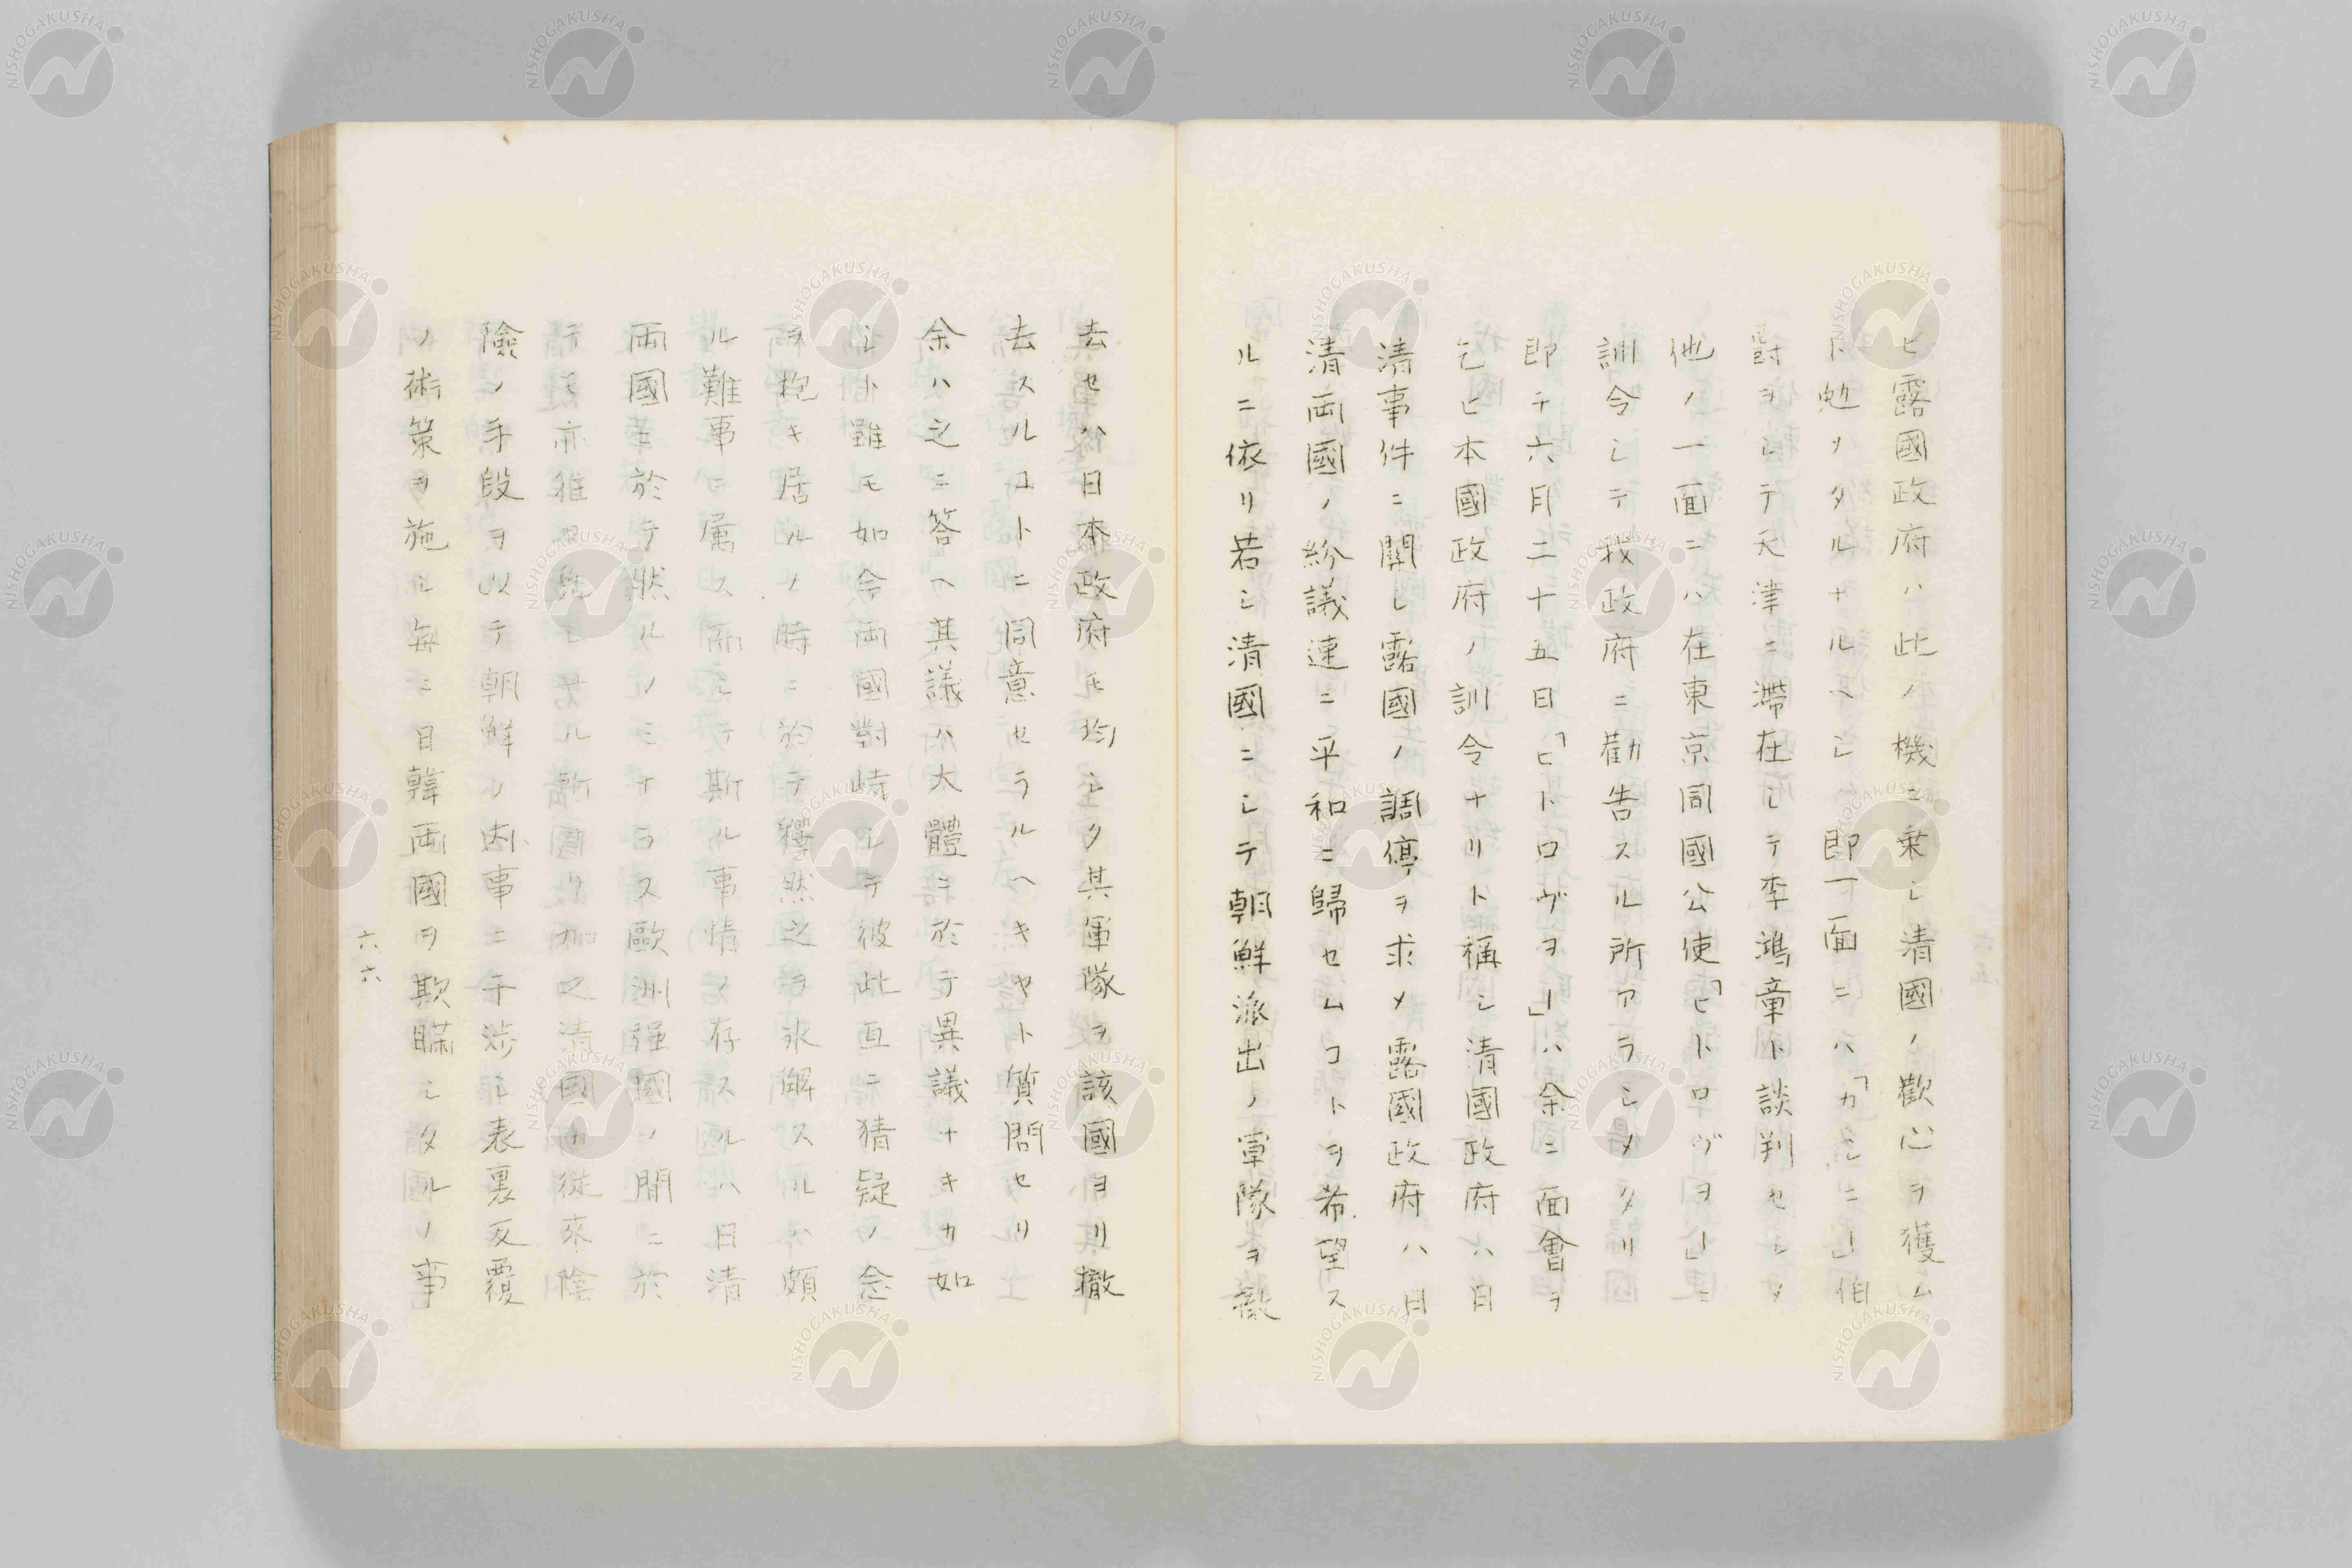 ヒ露國政府ハ此ノ機ニ乗シ清國ノ歡心ヲ獲ム
ト勉メタルナルヘシ即一面ニハ「カシニー」伯
爵ヲシテ天津ニ滞在シテ李鴻章ト談判セシメ
他ノ一面ニハ在東京同國公使「ヒトロヴヲー」ニ
訓令シテ我政府ニ勸告スル所アラシメタリ
即チ六月二十五日「ヒトロヴヲー」ハ余ニ面會ヲ
乞ヒ本國政府ノ訓令ナリト稱シ清國政府ハ日
清事件ニ關シ露國ノ調停ヲ求メ露國政府ハ日
清両國ノ紛議速ニ平和ニ歸セムコトヲ希望ス
ルニ依リ若シ清國ニシテ朝鮮派出ノ軍隊ヲ撤
去セハ日本政府モ均シク其軍隊ヲ該國ヨリ撤
去スルコトニ同意セラルヘキヤト質問セリ
余ハ之ニ答ヘ其議ハ大體ニ於テ異議ナキカ如
シト雖モ如今両國對峙シテ彼此互ニ猜疑ノ念
ヲ抱キ居ルノ時ニ於テ釋然之ヲ氷解スルハ頗
ル難事ニ属ス而シテ斯ル事情ノ存スルハ日清
両國ニ於テ然ルノミナラス歐洲强國ノ間ニ於
テモ亦往々免レサル所ナリ加之清國カ從來陰
險ノ手段ヲ以テ朝鮮ノ内事ニ干渉シ表裏反覆
ノ術策ヲ施シ毎ニ日韓両國ヲ欺瞞シタルノ事
六六
NISHOGAKUSHA